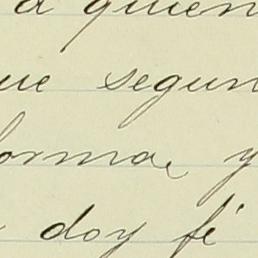 a quien
ue segun
forma, y
doy fé